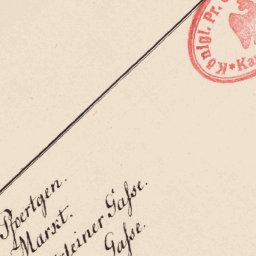 Königl. Pr.
Ka
Poertgen.
Markt.
steiner Gaſse.
Gaſse.